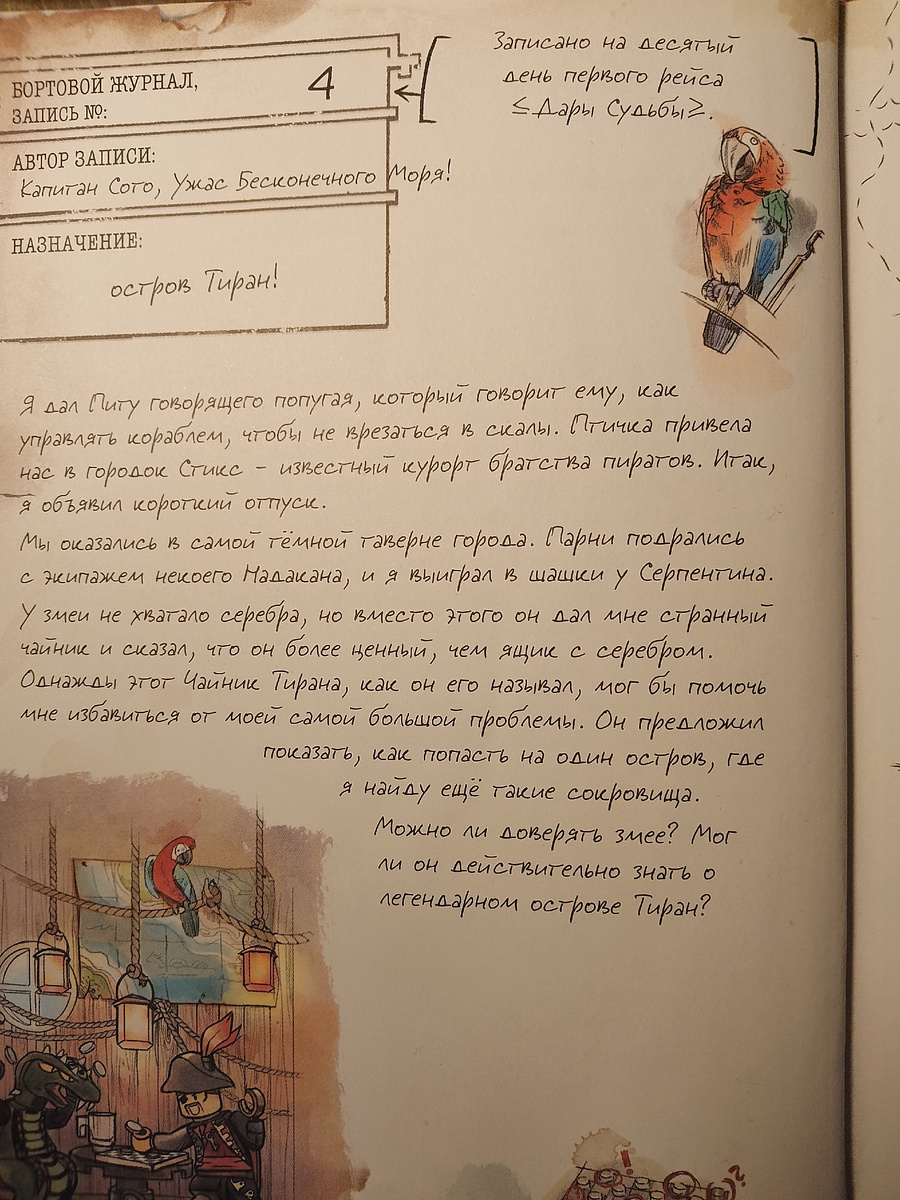 БОРТОВОЙ ЖУРНАЛ,
ЗАПИСЬ №:
4
Записано на десятый
день первого рейса
≤Дары Судьбы≥.
АВТОР ЗАПИСИ:
Капитан Сото, Ужас Бесконечного Моря!
НАЗНАЧЕНИЕ:
остров Тиран!
Я дал Питу говорящего попугая, который говорит ему, как
управлять кораблем, чтобы не врезаться в скалы. Птичка привела
нас в городок Стикс – известный курорт братства пиратов. Итак,
я объявил короткий отпуск.
Мы оказались в самой тёмной таверне города. Парни подрались
с экипажем некоего Надакана, и я выиграл в шашки у Серпентина.
У змеи не хватало серебра, но вместо этого он дал мне странный
чайник и сказал, что он более ценный, чем ящик с серебром.
Однажды этот Чайник Тирана, как он его называл, мог бы помочь
мне избавиться от моей самой большой проблемы. Он предложил
показать, как попасть на один остров, где
я найду ещё такие сокровища.
Можно ли доверять змее? Мог
ли он действительно знать о
легендарном острове Тиран?
! ?